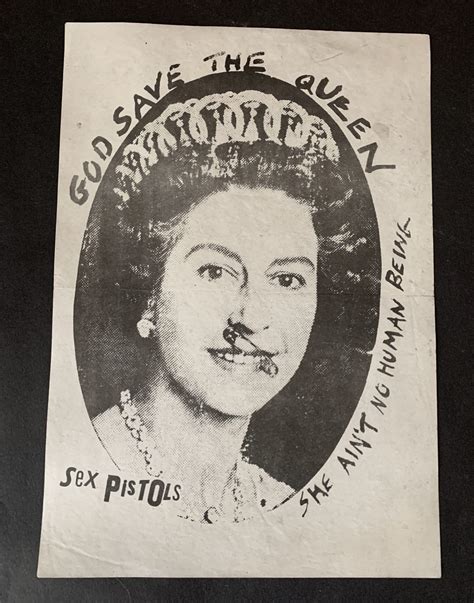 GOD SAVE THE QUEEN
SHE AIN'T NO HUMAN BEING
SeX PISTOLS